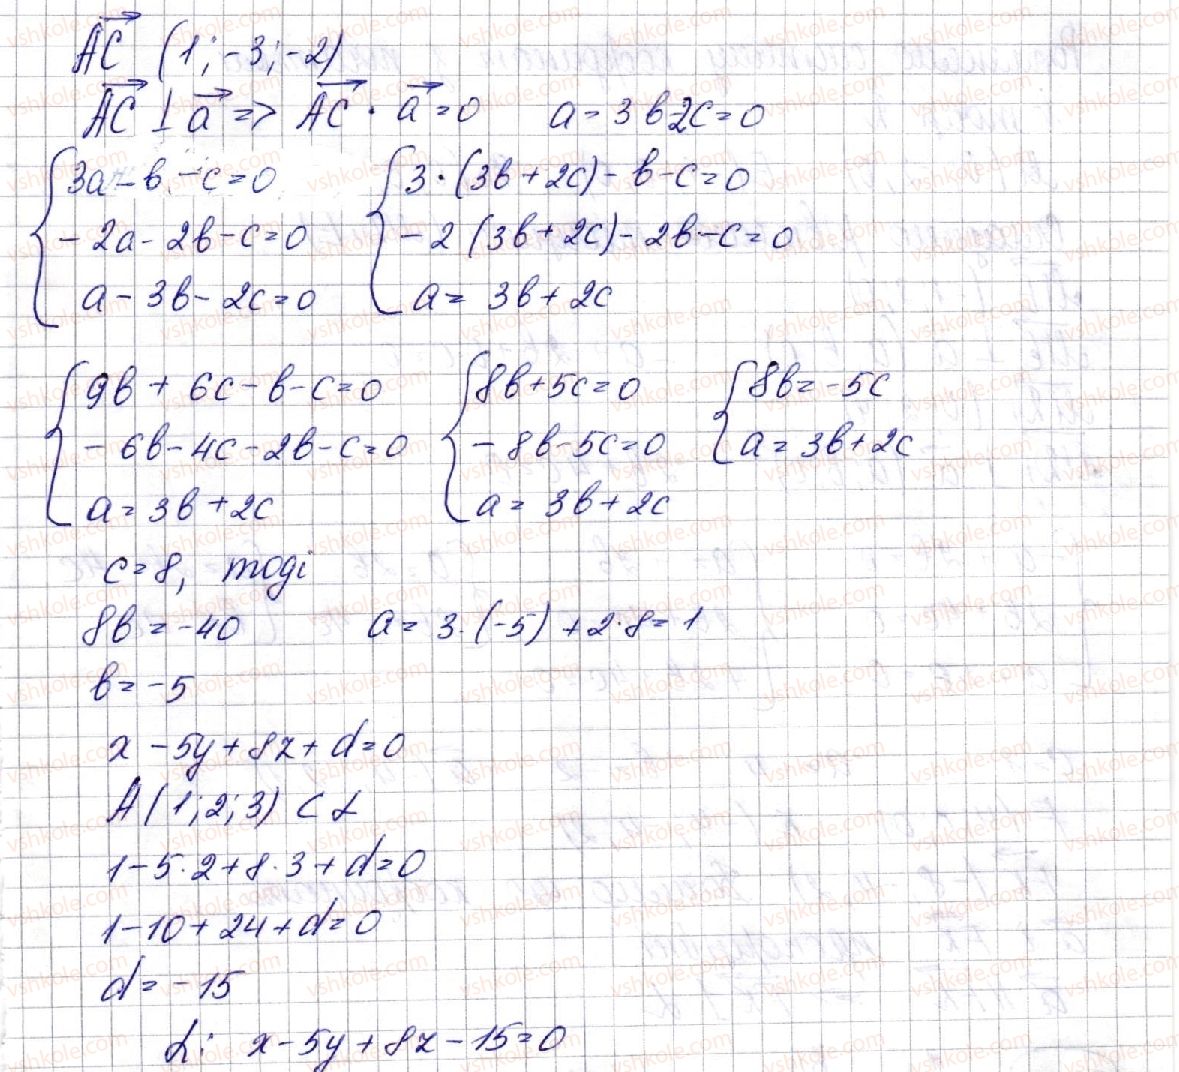 AC (1; -3; -2)
AC ⊥ a => AC · a = 0 a = 3b2c = 0
{ 3a - b - c = 0 { 3·(3b + 2c) - b - c = 0
- 2a - 2b - c = 0 - 2 (3b + 2c) - 2b - c = 0
a - 3b - 2c = 0 a = 3b + 2c
{ 9b + 6c - b - c = 0 { 8b + 5c = 0 { 8b = -5c
- 6b - 4c - 2b - c = 0 - 8b - 5c = 0 a = 3b + 2c
a = 3b + 2c a = 3b + 2c
c = 8, тоді
8b = -40 a = 3·(-5) + 2·8 = 1
b = -5
x - 5y + 8z + d = 0
A (1; 2; 3) ⊂ α
1 - 5·2 + 8·3 + d = 0
1 - 10 + 24 + d = 0
d = -15
α: x - 5y + 8z - 15 = 0
vshkole.com